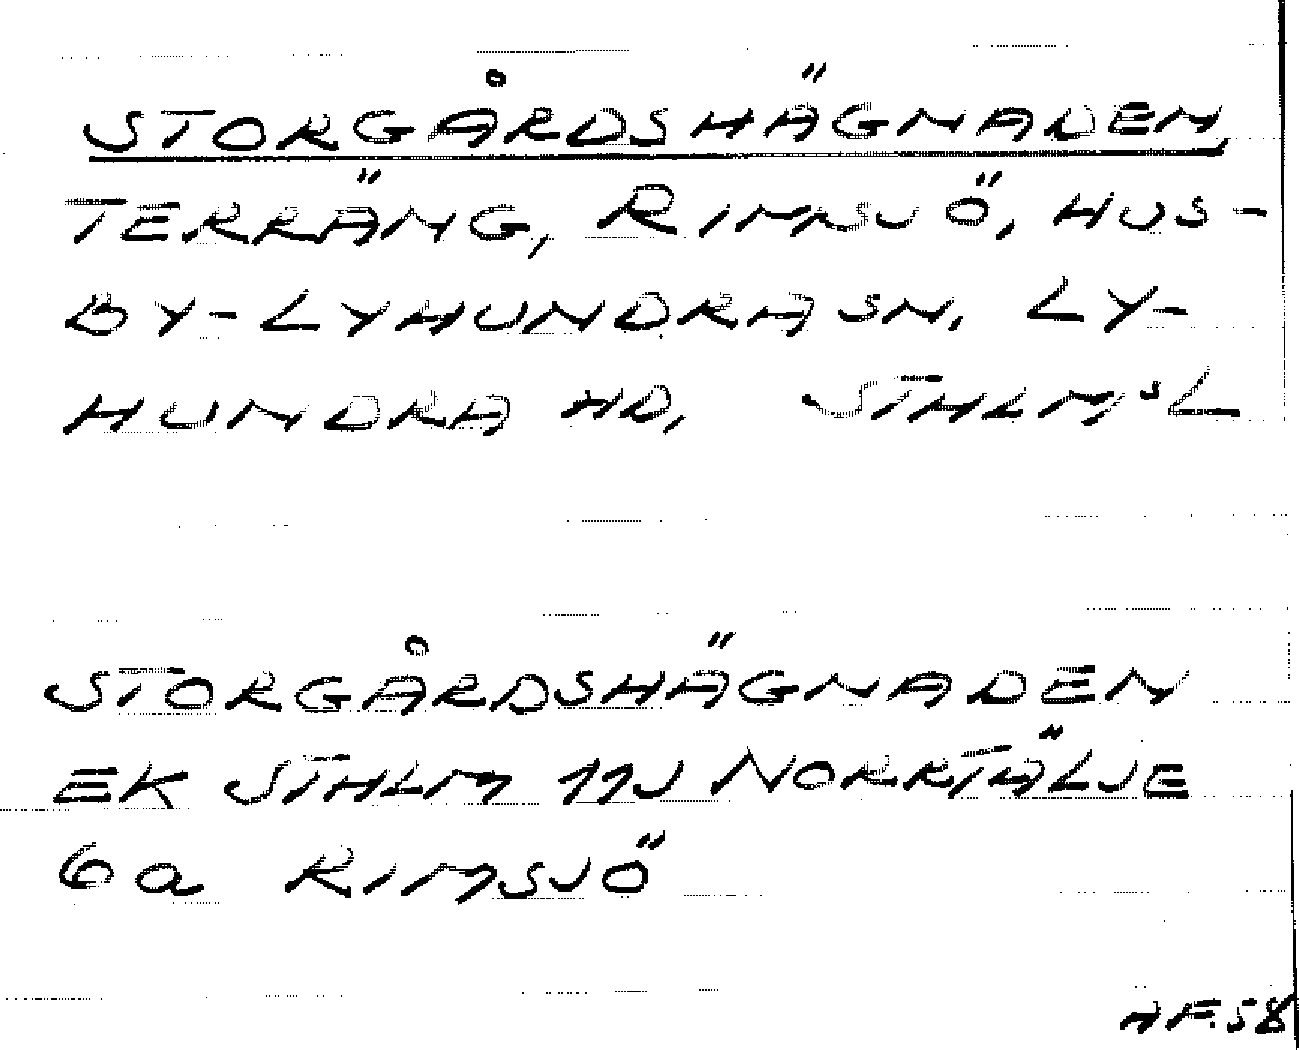 STORGÅRDSHÄGNADEN,
TERRÄNG, RIMSJÖ, HUS-
BY-LYHUNDRA SN, LY-
HUNDRA HD, STHLMS L
STORGÅRDSHÄGNADEN
EK STHLM 11J NORRTÄLJE
6a RIMSJÖ
AF.58